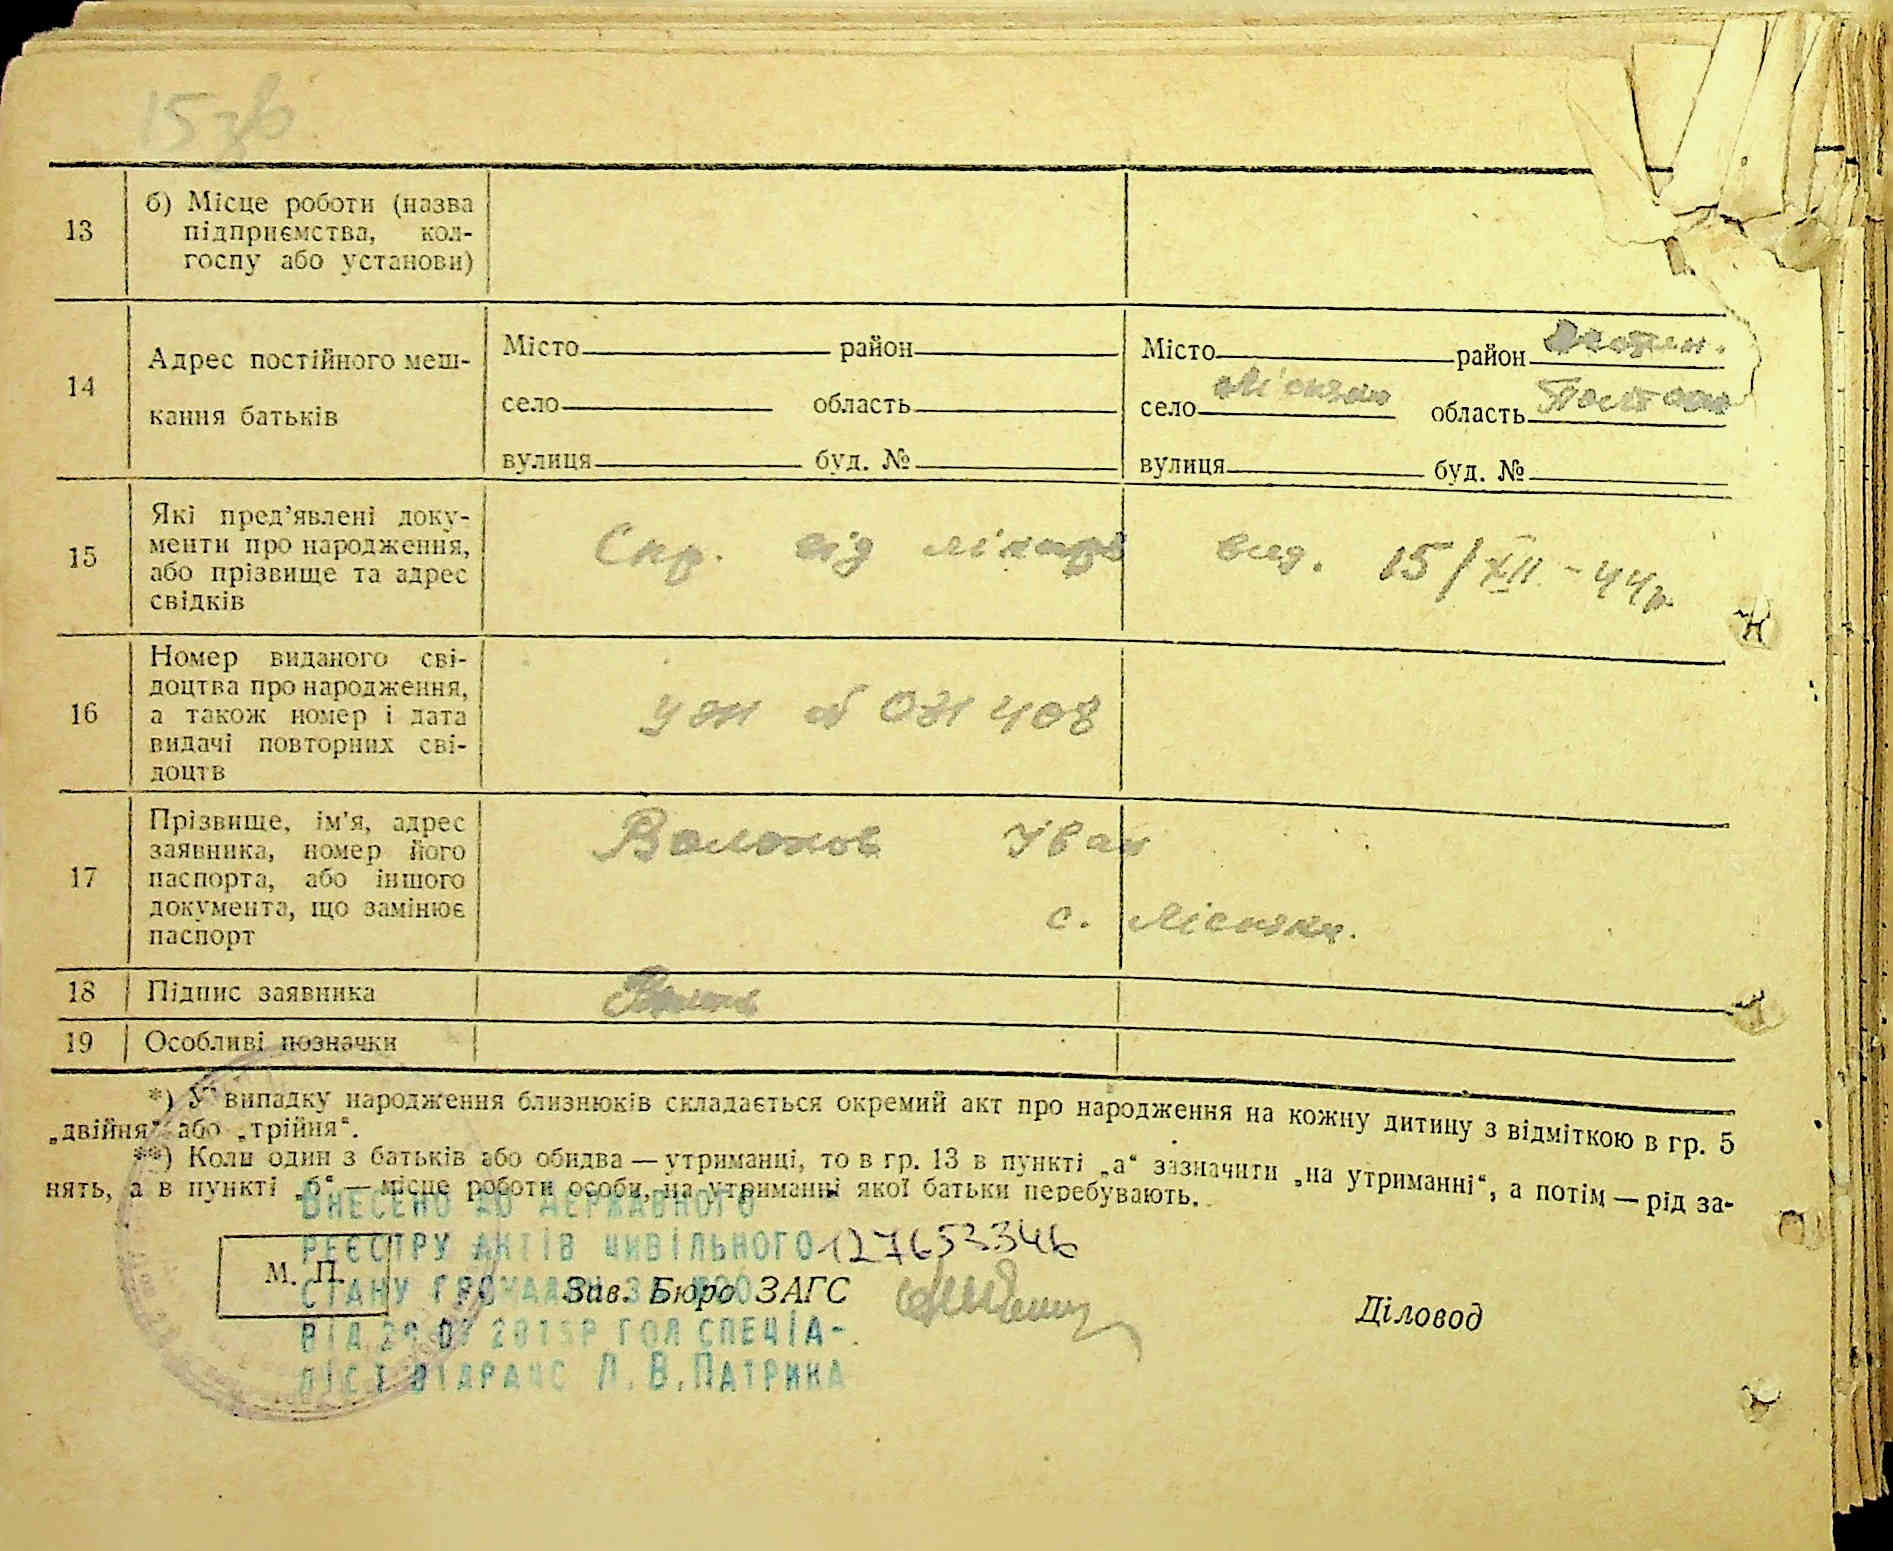 15 зв
13
б) Місце роботи (назва
підприємства, кол-
госпу або установи)
14
Адрес постійного меш-
кання батьків
Місто район
село область
вулиця буд. №
Місто район
село область
вулиця буд. №
15
Які пред’явлені доку-
менти про народження,
або прізвище та адрес
свідків
Спр. від лікаря вид. 15/XII-44р.
16
Номер виданого сві-
доцтва про народження,
а також номер і дата
видачі повторних сві-
доцтв
408
17
Прізвище, ім’я, адрес
заявника, номер його
паспорта, або іншого
документа, що замінює
паспорт
Іван
с.
18
Підпис заявника
19
Особливі позначки
*) У випадку народження близнюків складається окремий акт про народження на кожну дитину з відміткою в гр. 5
„двійня“ або „трійня“.
**) Коли один з батьків або обидва — утриманці, то в гр. 13 в пункті „а“ зазначити „на утриманні“, а потім — рід за-
нять, а в пункті „б“ — місце роботи особи, на утриманні якої батьки перебувають.
ВНЕСЕНО ДО ДЕРЖАВНОГО
РЕЄСТРУ АКТІВ ЦИВІЛЬНОГО
СТАНУ ГРОМАДЯН ЗА
ВІД ГОЛ СПЕЦІА-
ЛІСТ ВІДРАЦС Л.В.ПАТРИКА
М. П.
Зав. Бюро ЗАГС
Діловод